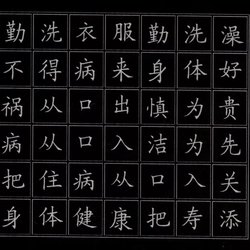 勤洗衣服勤洗澡
不得病来身体好
祸从口出慎为贵
病从口入洁为先
把住病从口入关
身体健康把寿添